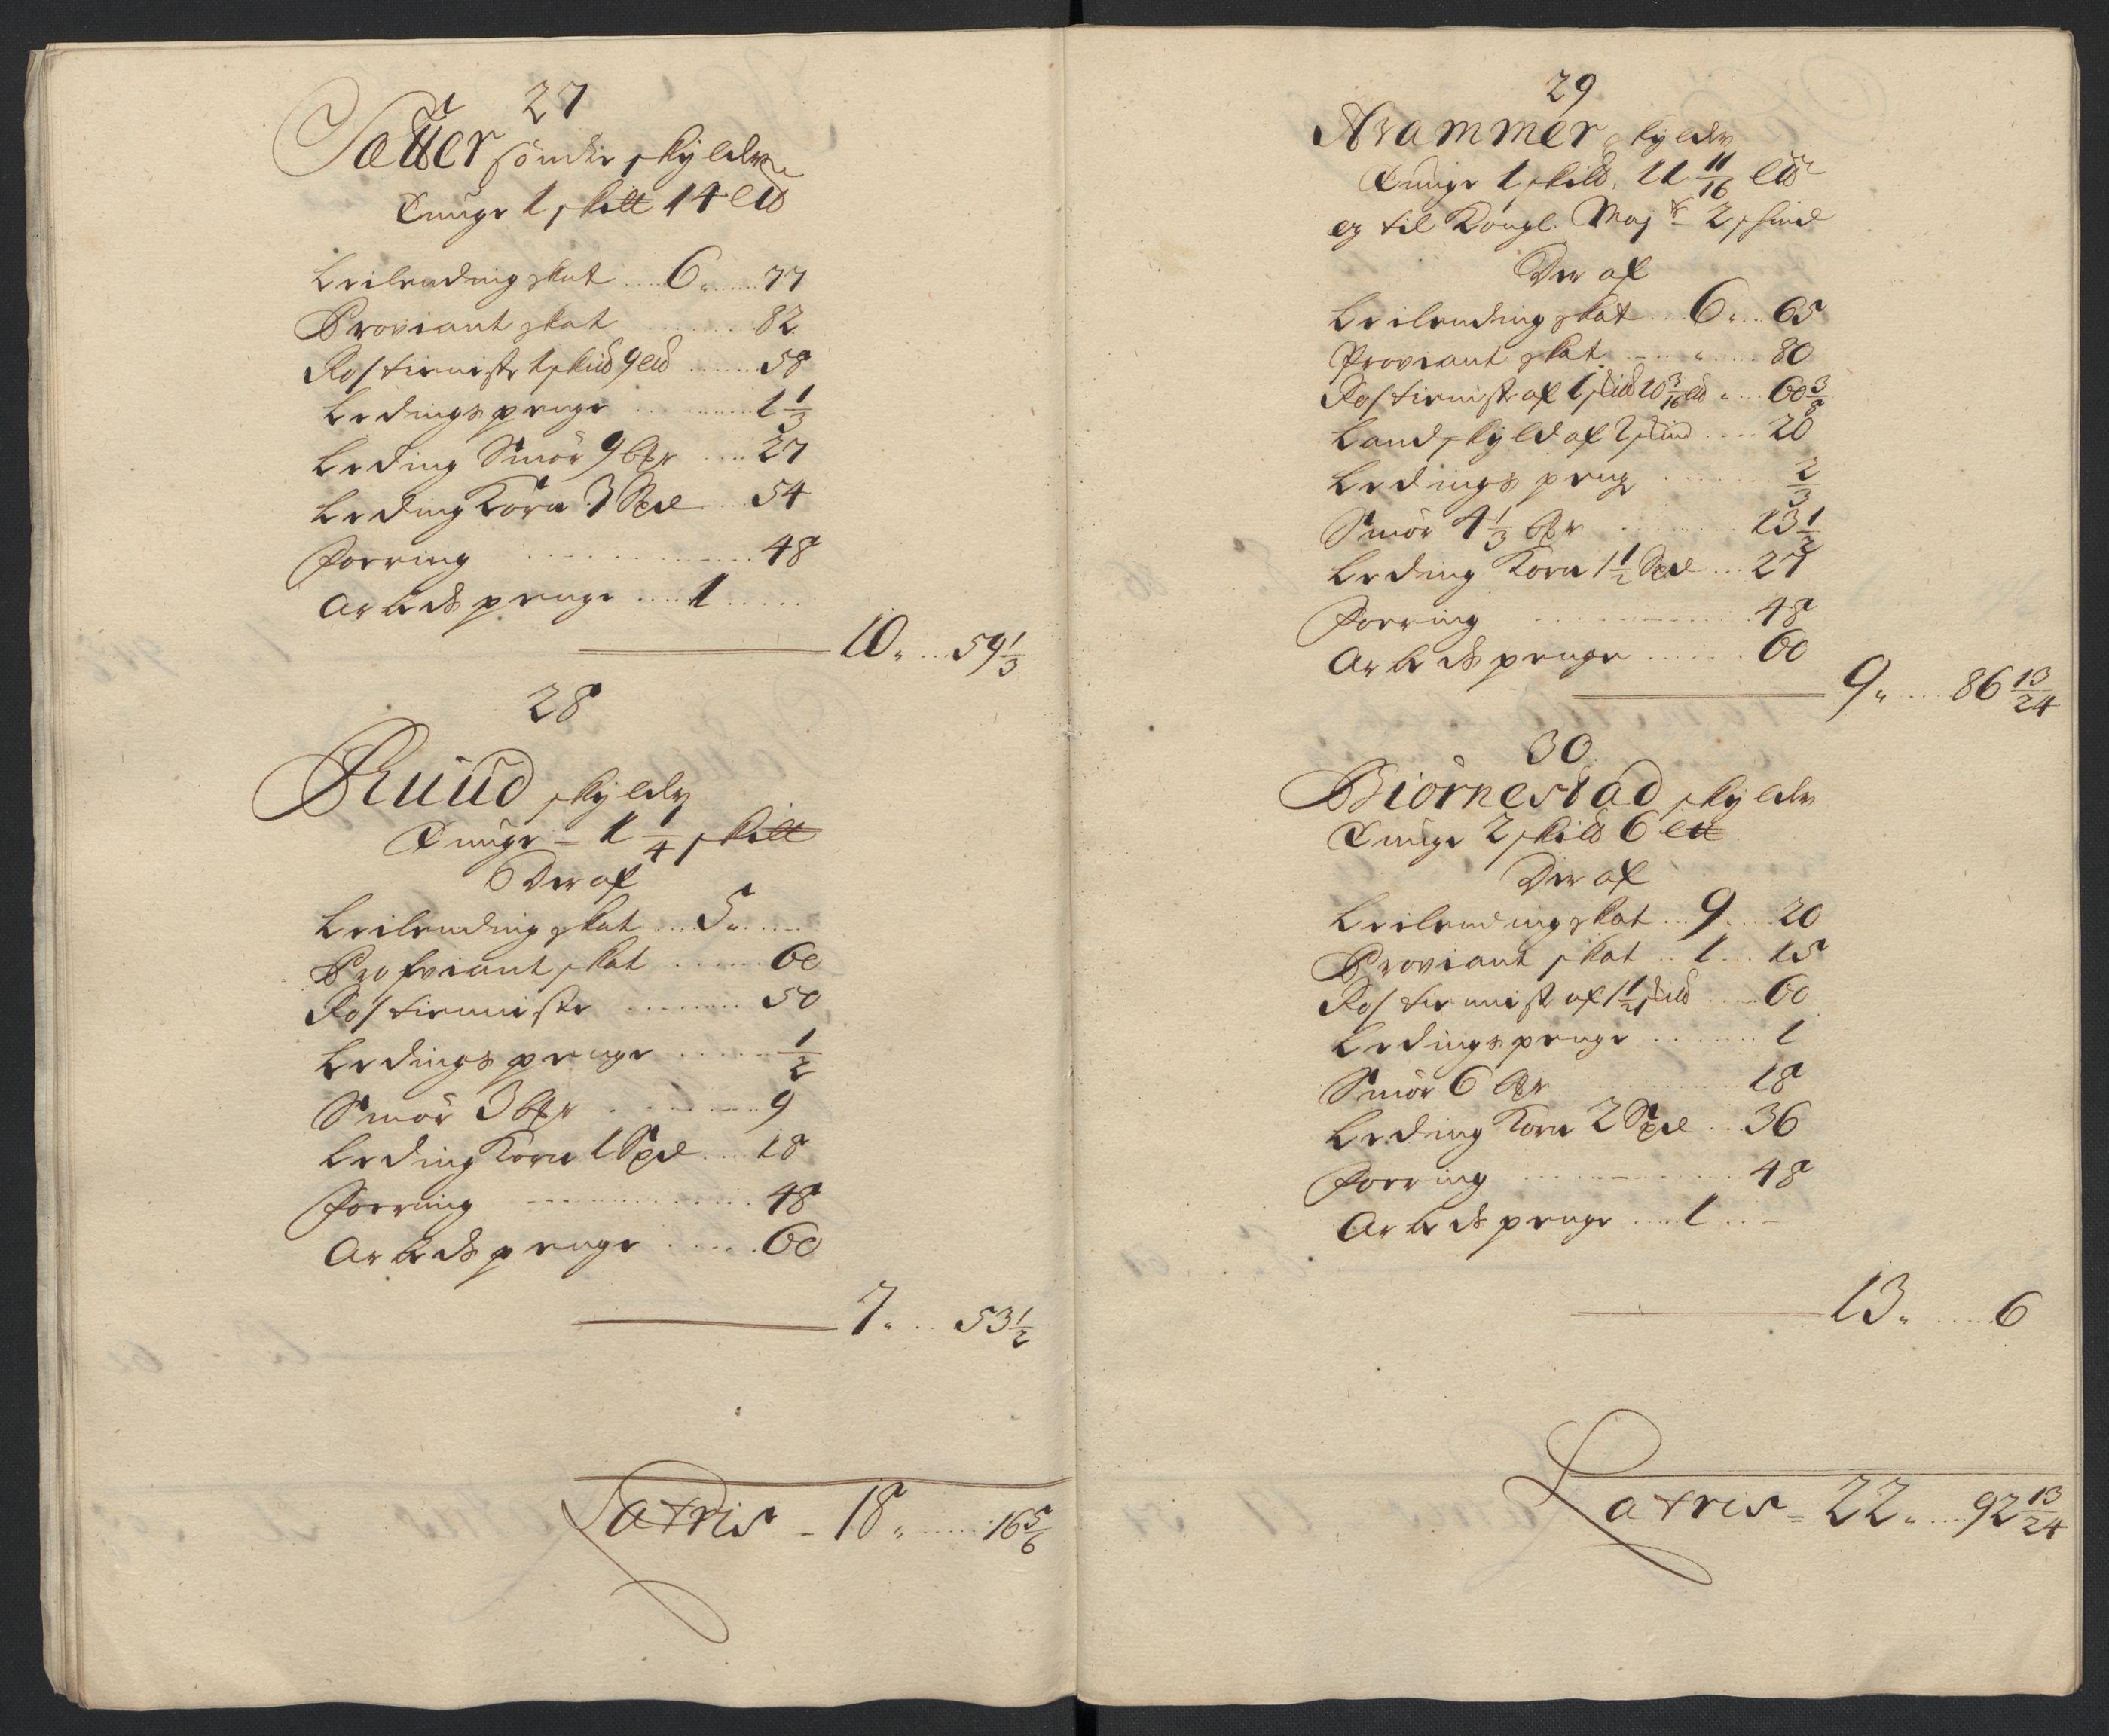 27
Sætter söndre skylder
Tunge 1 skitt 14 ett
Leilending skat 6 „ 77
Proviant skat 82
Rostieniste 1 skid 9 ett 58
Ledings penge 1 1/3
Leding Smör 9 bpr 27
Leding Korn 3 Spd 54
Foering 48
Arbeds penge 1
10 „ 59 1/3
28
Ruud skylder
Tunge - 1 1/4 skitt
Der af
Leilending skat 5 „
Profviant skat 60
Rostienniste 50
Ledings penge 1/2
Smör 3 bpr 9
Leding Korn 1 Spd 18
Foering 48
Arbeds penge 60
7 „ 53 1/2
Latris - 18 „ 16 5/6
29
skylder
Tunge 1 skild 11 11/16 ett
og til Kongl. May 2 skind
Der af
Leilending skat 6 „ 65
Proviant skat „ 80
Rostienist af 1 skid 20 3/16 ett „ 60 3/8
Landskyld af 2 skind 20
Ledings peng 2/3
Smör 4 1/3 bpr 13 1/2
Leding Korn 1 1/2 Spd 27
Foering 48
Arbeds penge 60
9 „ 86 13/24
30
Biörnestad skylder
Tunge 2 skild 6 ett
Der af
Leilending skat 9 20
Proviant skat 1 15
Rostiennist af 1 1/2 skid 60
Ledings penge 1
Smör 6 bpr 18
Leding Korn 2 Spd 36
Foering 48
Arbeds penge 1
13 „ 6
Latris = 22 „ 92 13/24